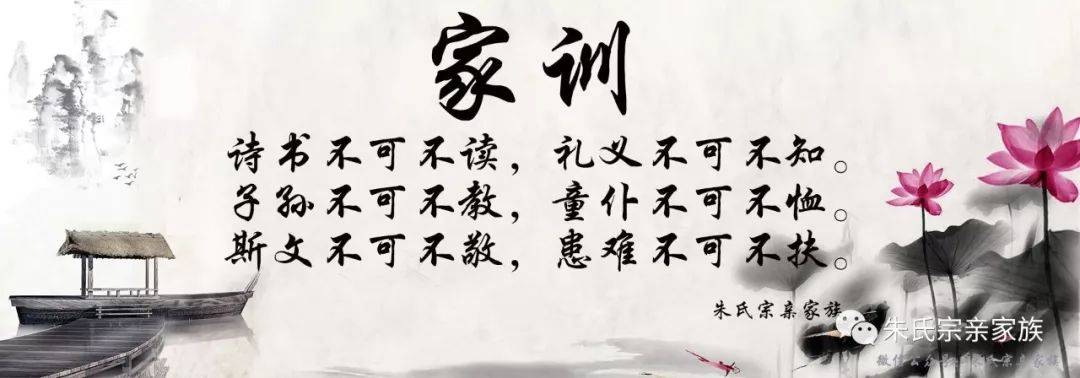 家训
诗书不可不读，礼义不可不知。
子孙不可不教，童仆不可不恤。
斯文不可不敬，患难不可不扶。
朱氏宗亲家族
朱氏宗亲家族
微信公众号：朱氏宗亲家族